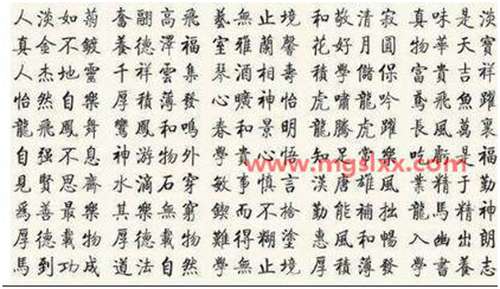 人淡如菊 奮翮高飛 藝無止境 和敬清寂 真味是淡
真金不鍍 養德澤福 室雅蘭馨 花好月圓 物華天寶
人杰地靈 千祥雲集 琴酒相壽 學儲 富貴吉祥
怡然自樂 厚積薄發 心曠神怡 虎嘯龍吟 鳶飛魚躍
龍飛鳳舞 鸞鳳和鳴 春和景明 龍騰虎躍 長風萬裏
自强不息 神游物外 學貴心悟 知足常樂 吃虧是福
www.mgslxx.com
見賢思齋 水滴石穿 敏事慎言 漢唐雄風 業精于勤
爲善最樂 其樂無窮 鍥而不捨 勤能補拙 龍馬精神
厚德載物 厚德載物 難得糊塗 惠風和暢 入幽出朗
馬到功成 道法自然 學無止境 厚積薄發 學書養志